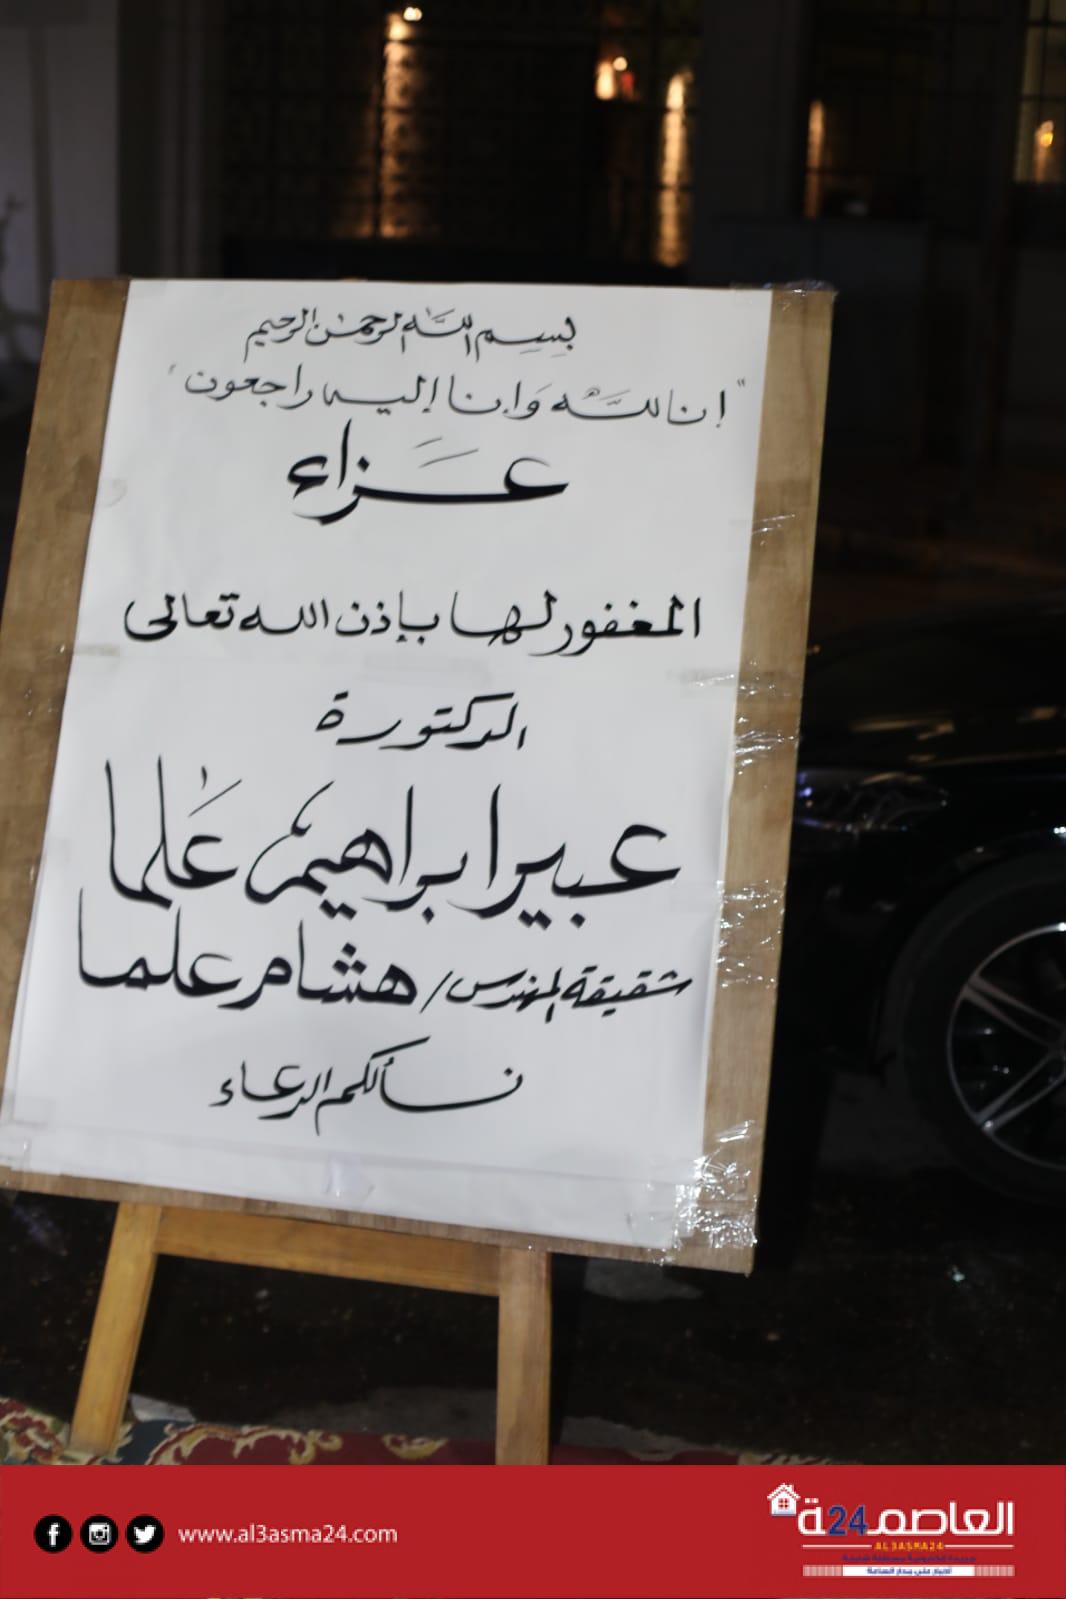 بسم الله الرحمن الرحيم
"إنا لله وإنا إليه راجعون"
عزاء
المغفور لها بإذن الله تعالى
الدكتورة
عبير ابراهيم علما
شقيقة المهندس / هشام علما
نسألكم الدعاء
العاصمة24
AL3ASMA24
www.al3asma24.com